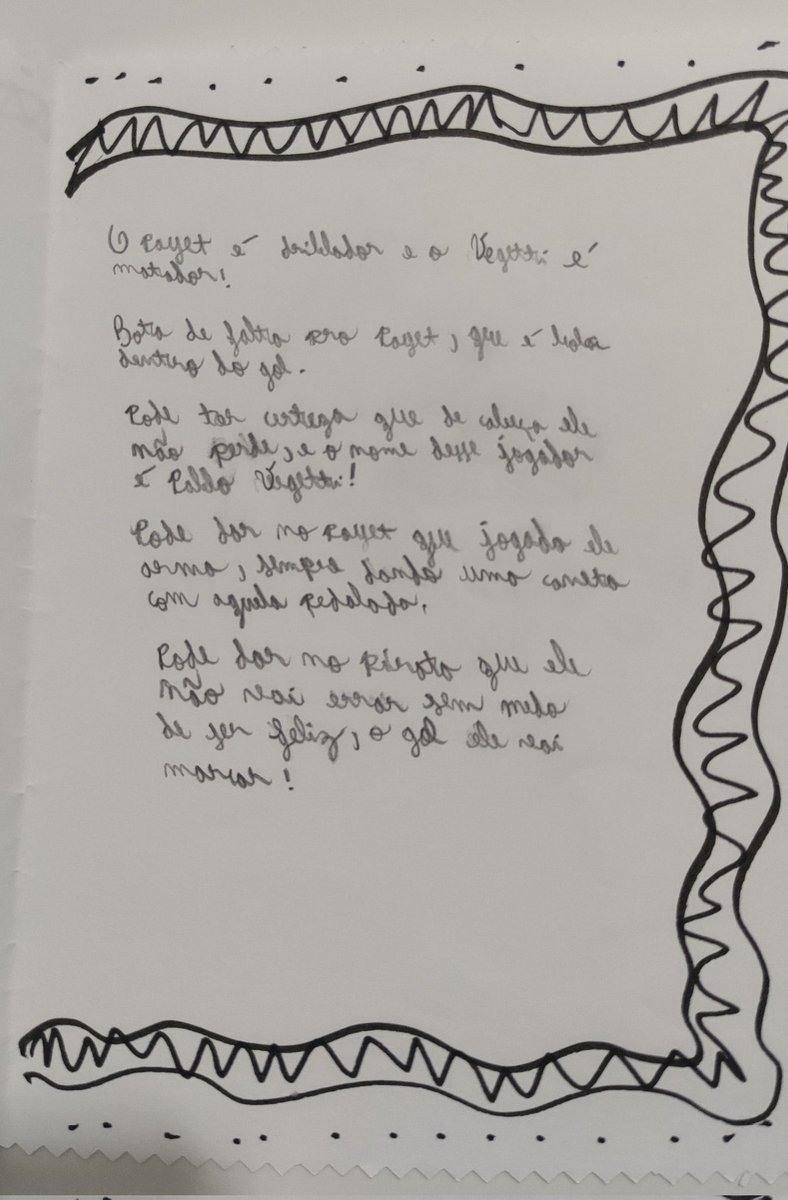 O Payet é driblador e o Vegetti é
matador!
Bota de falta pro Payet, que é bola
dentro do gol.
Pode ter certeza que de cabeça ele
não perde, e o nome desse jogador
é Pablo Vegetti!
Pode dar no Payet que jogada ele
arma, sempre dando uma caneta
com aquela pedalada.
Pode dar no pirata que ele
não vai errar sem medo
de ser feliz, o gol ele vai
marcar!